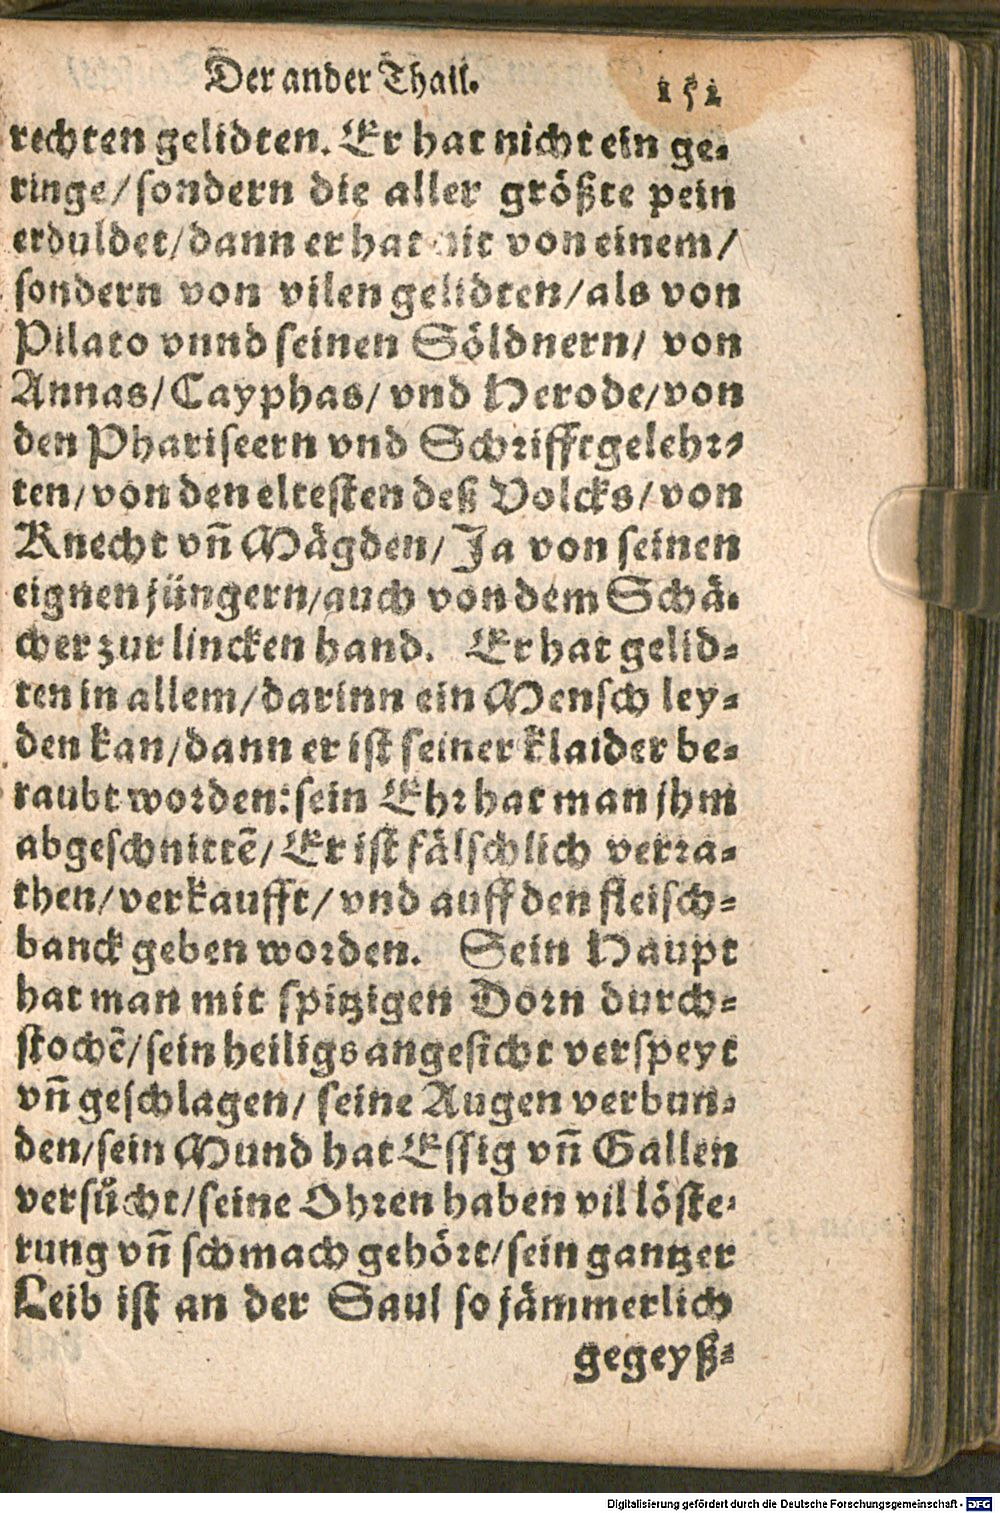 Der ander Thail. 151
rechten gelidten. Er hat nicht ein ge-
ringe/sondern die aller größte pein
erduldet/dann er hat nit von einem/
sondern von vilen gelidten/als von
Pilato vnnd seinen Söldnern/ von
Annas/Cayphas/ vnd Herode/von
den Phariseern vnd Schrifftgelehr-
ten/von den eltesten deß Volcks/von
Knecht vn̄ Mägden/ Ja von seinen
eignen jüngern/auch von dem Schä-
cher zur lincken hand. Er hat gelid-
ten in allem/darinn ein Mensch ley-
den kan/dann er ist seiner klaider be-
raubt worden: sein Ehr hat man jhm
abgeschnittē/Er ist fälschlich verra-
then/verkaufft/vnd auff den fleisch-
banck geben worden. Sein Haupt
hat man mit spitzigen Dorn durch-
stochē/sein heiligs angesicht verspeyt
vn̄ geschlagen/ seine Augen verbun-
den/sein Mund hat Essig vn̄ Gallen
versůcht/seine Ohren haben vil löste-
rung vn̄ schmach gehört/sein gantzer
Leib ist an der Saul so jämmerlich
gegeyß-
Digitalisierung gefördert durch die Deutsche Forschungsgemeinschaft - DFG